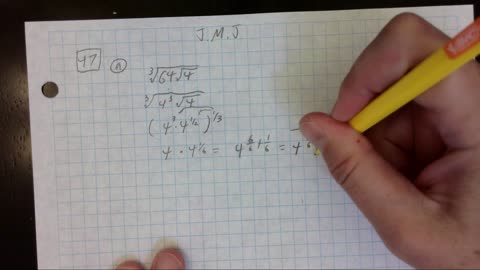 J.M.J
47 a
∛(64√4)
∛(4³√4)
(4³·4^(1/2))^(1/3)
4 · 4^(1/6) = 4^(6/6+1/6) = 4